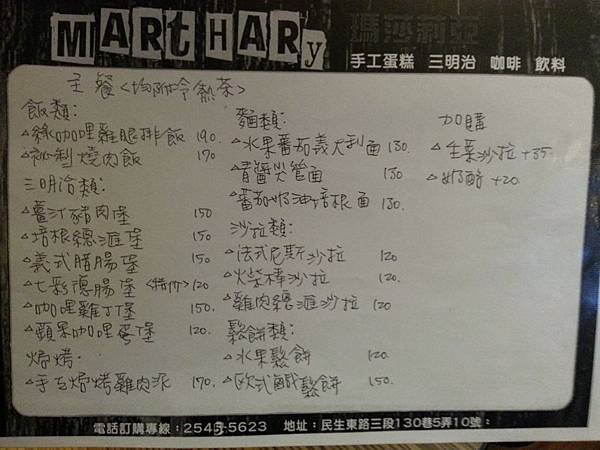 MARTHARy
瑪莎莉亞
手工蛋糕 三明治 咖啡 飲料
主餐<均附冷熱茶>
飯類:
△綠咖哩雞腿排飯 190.
△祕製燒肉飯 170
三明治類:
△薑汁豬肉堡 150
△培根總滙堡 150
△義式腊腸堡 150
△七彩德腸堡<特價>120
△咖哩雞丁堡 150.
△蘋果咖哩蛋堡 120.
焗烤:
△手工焗烤雞肉派 170.
麵類:
△水果番茄義大利面 130.
△青醬尖管面 130
△番茄奶油培根面 130.
沙拉類:
△法式尼斯沙拉 120
△火棒沙拉 120.
△雞肉總滙沙拉 120
鬆餅類:
△水果鬆餅 120.
△歐式鹹鬆餅 150.
加購
△生菜沙拉+35.
△奶酪+20.
電話訂購專線:2545-5623 地址:民生東路三段130巷5弄10號: